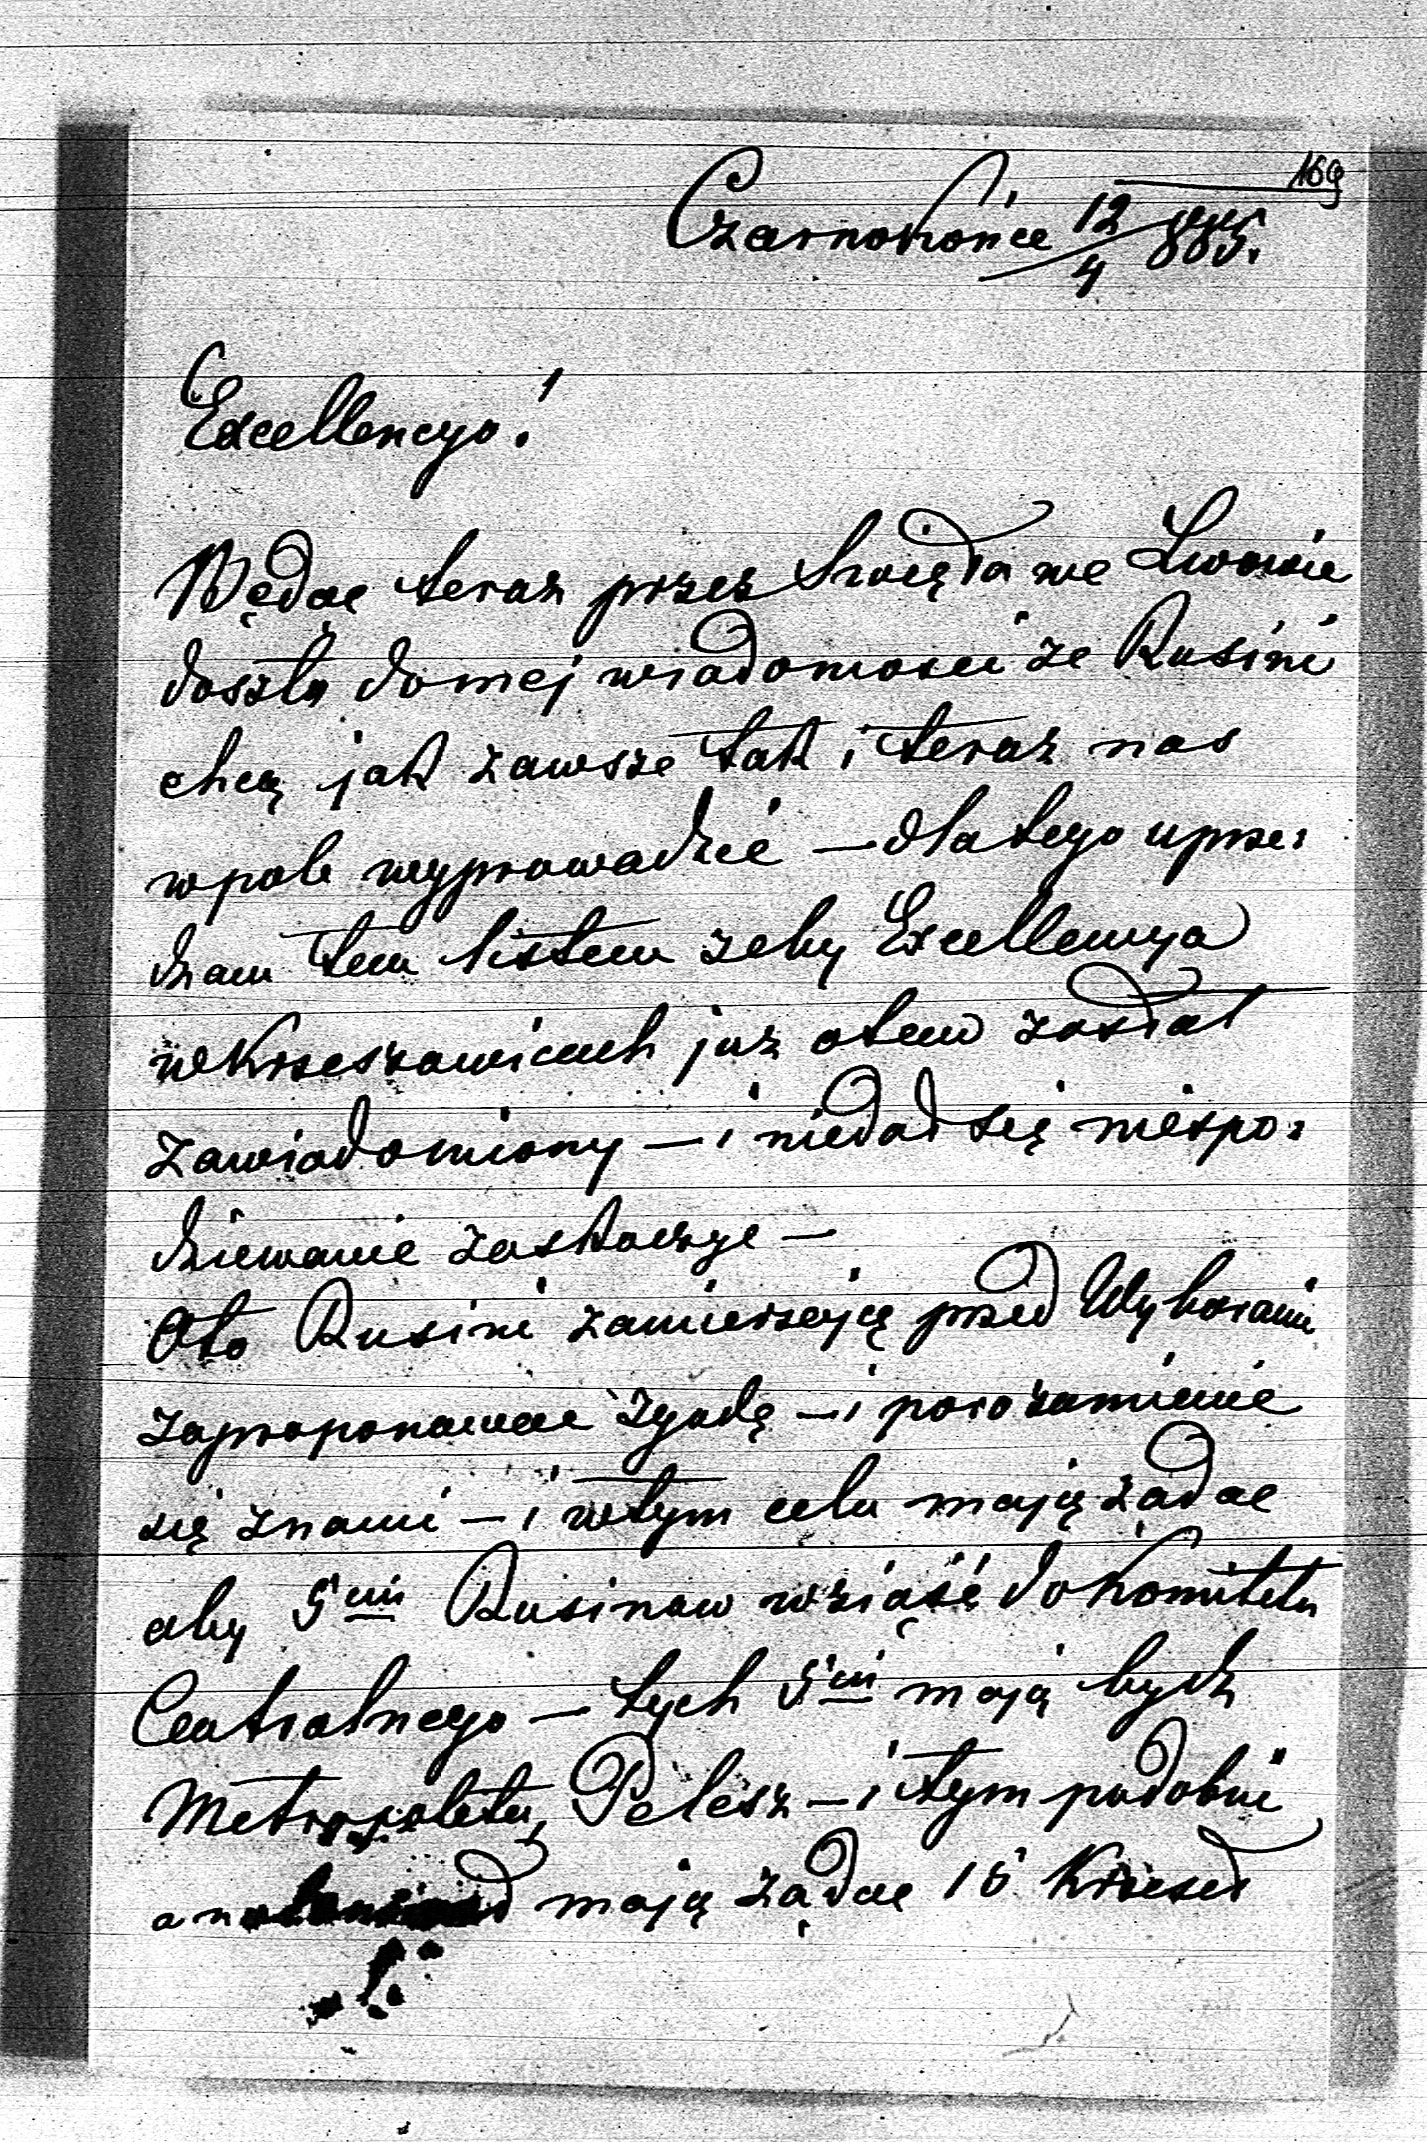 169
Czarnokońce 12/4 885.
Excellencyo!
Będąc teraz przez Święta we Lwowie
doszło do mej wiadomości że Rusini
chcą jak zawsze tak i teraz nas
w pole wyprowadzić — dlatego uprze:
dzam tem listem zeby Excellencya
w Krzeszowicach juz otem został
zawiadomiony — i niedał się niespo:
dziewanie zaskoczyc —
Oto Rusini zamierzają przed Wyborami
zaproponowac zgodę — i porozumienie
się znami — i wtym celu mają żądac
aby 5ciu Rusinow wziąść do Komitetu
Centralnego — tych 5ciu mają bydz
Metropolita, Pelesz — i tym podobni
a mają żądac 15 Krzeseł